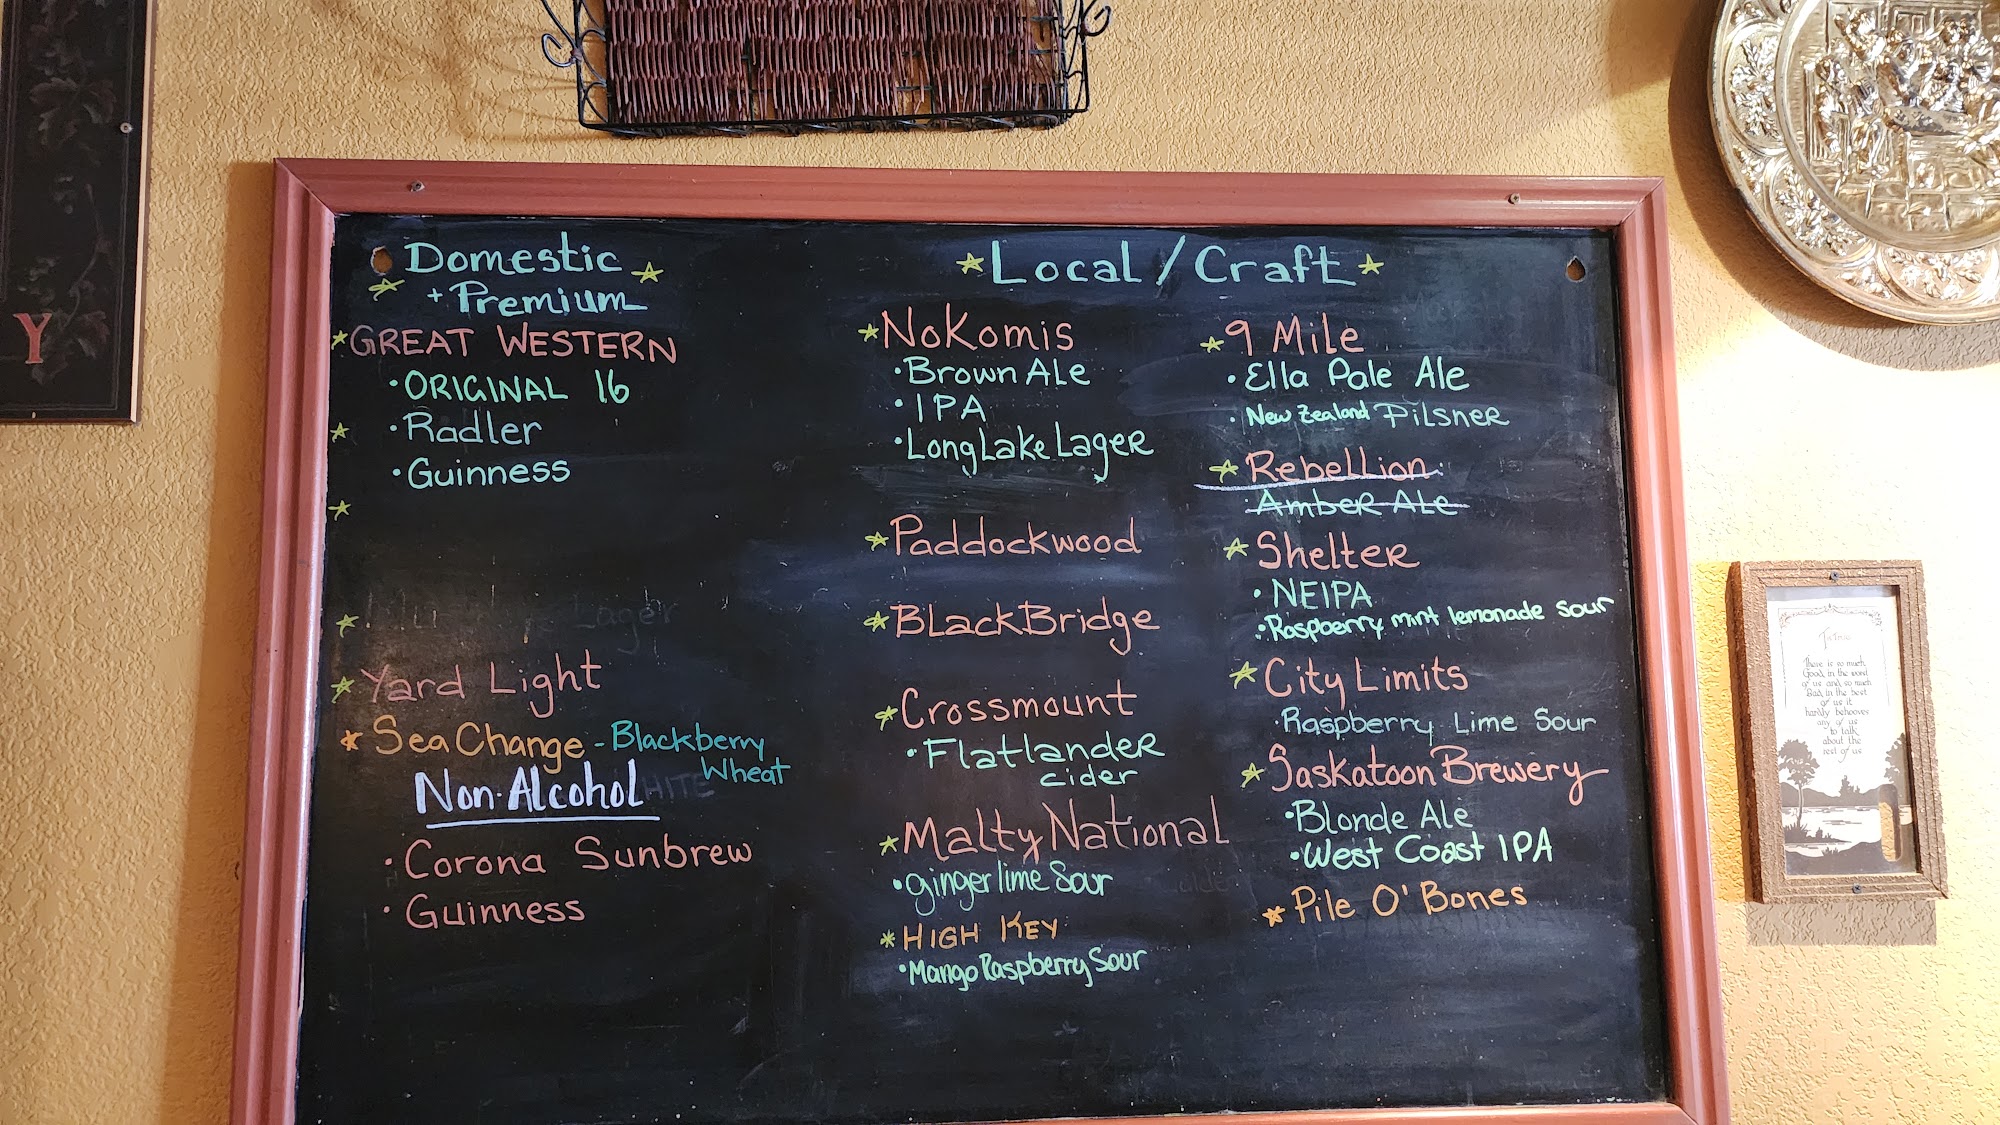 Y
Domestic
+ Premium
GREAT WESTERN
• ORIGINAL 16
• Radler
• Guinness
Lager
Yard Light
Sea Change - Blackberry
Wheat
Non-Alcohol
• Corona Sunbrew
• Guinness
Local / Craft
Nokomis
• Brown Ale
• IPA
• Long Lake Lager
Paddockwood
BlackBridge
Crossmount
• Flatlander
cider
Malty National
• ginger lime Sour
HIGH KEY
• Mango Raspberry Sour
9 Mile
• Ella Pale Ale
• New Zealand Pilsner
Rebellion
• Amber Ale
Shelter
• NEIPA
• Raspberry mint lemonade sour
City Limits
• Raspberry Lime Sour
Saskatoon Brewery
• Blonde Ale
• West Coast IPA
Pile O' Bones
There is so much
Good, in the worst
of us and so much
Bad, in the best
of us it
hardly behooves
any of us
to talk
about the
rest of us